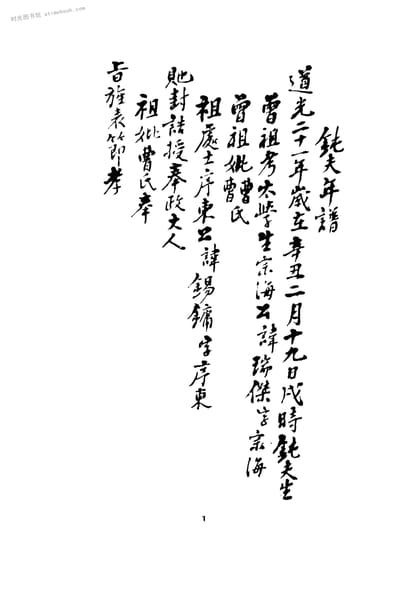 时光图书馆 atimebook.com
鈍夫年譜
道光二十一年歲在辛丑二月十九日戌時鈍夫生
曾祖考太學生宗海公諱瑞傑字宗海
曾祖妣曹氏
祖處士序東公諱錫鏞字序東
貤封誥授奉政大人
祖妣曹氏奉
旨旌表節孝
1